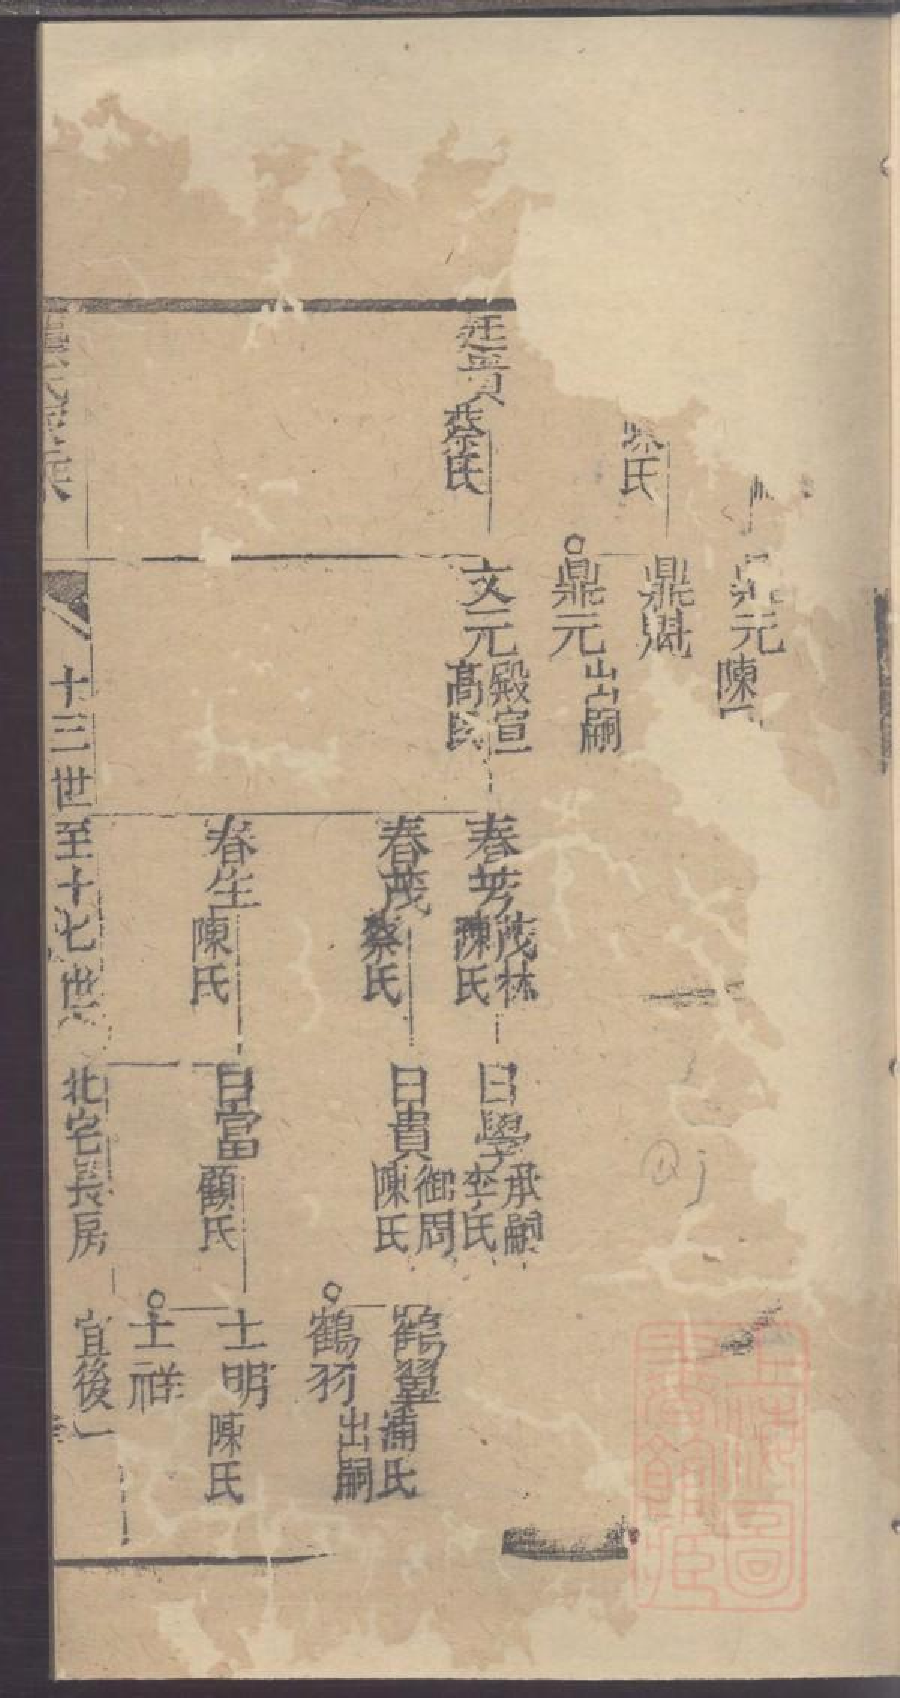 氏
元
陳
鼎
鼎元
出嗣
廷貢
蔡氏
文元
殿宣
高氏
春芳
茂林
陳氏
日學
承嗣
李氏
春茂
蔡氏
日貴
御周
陳氏
鶴翼
浦氏
鶴羽
出嗣
春生
陳氏
日富
顧氏
士明
陳氏
士祥
十三世至十七世
北宅長房
宜後一
上海圖
書館藏